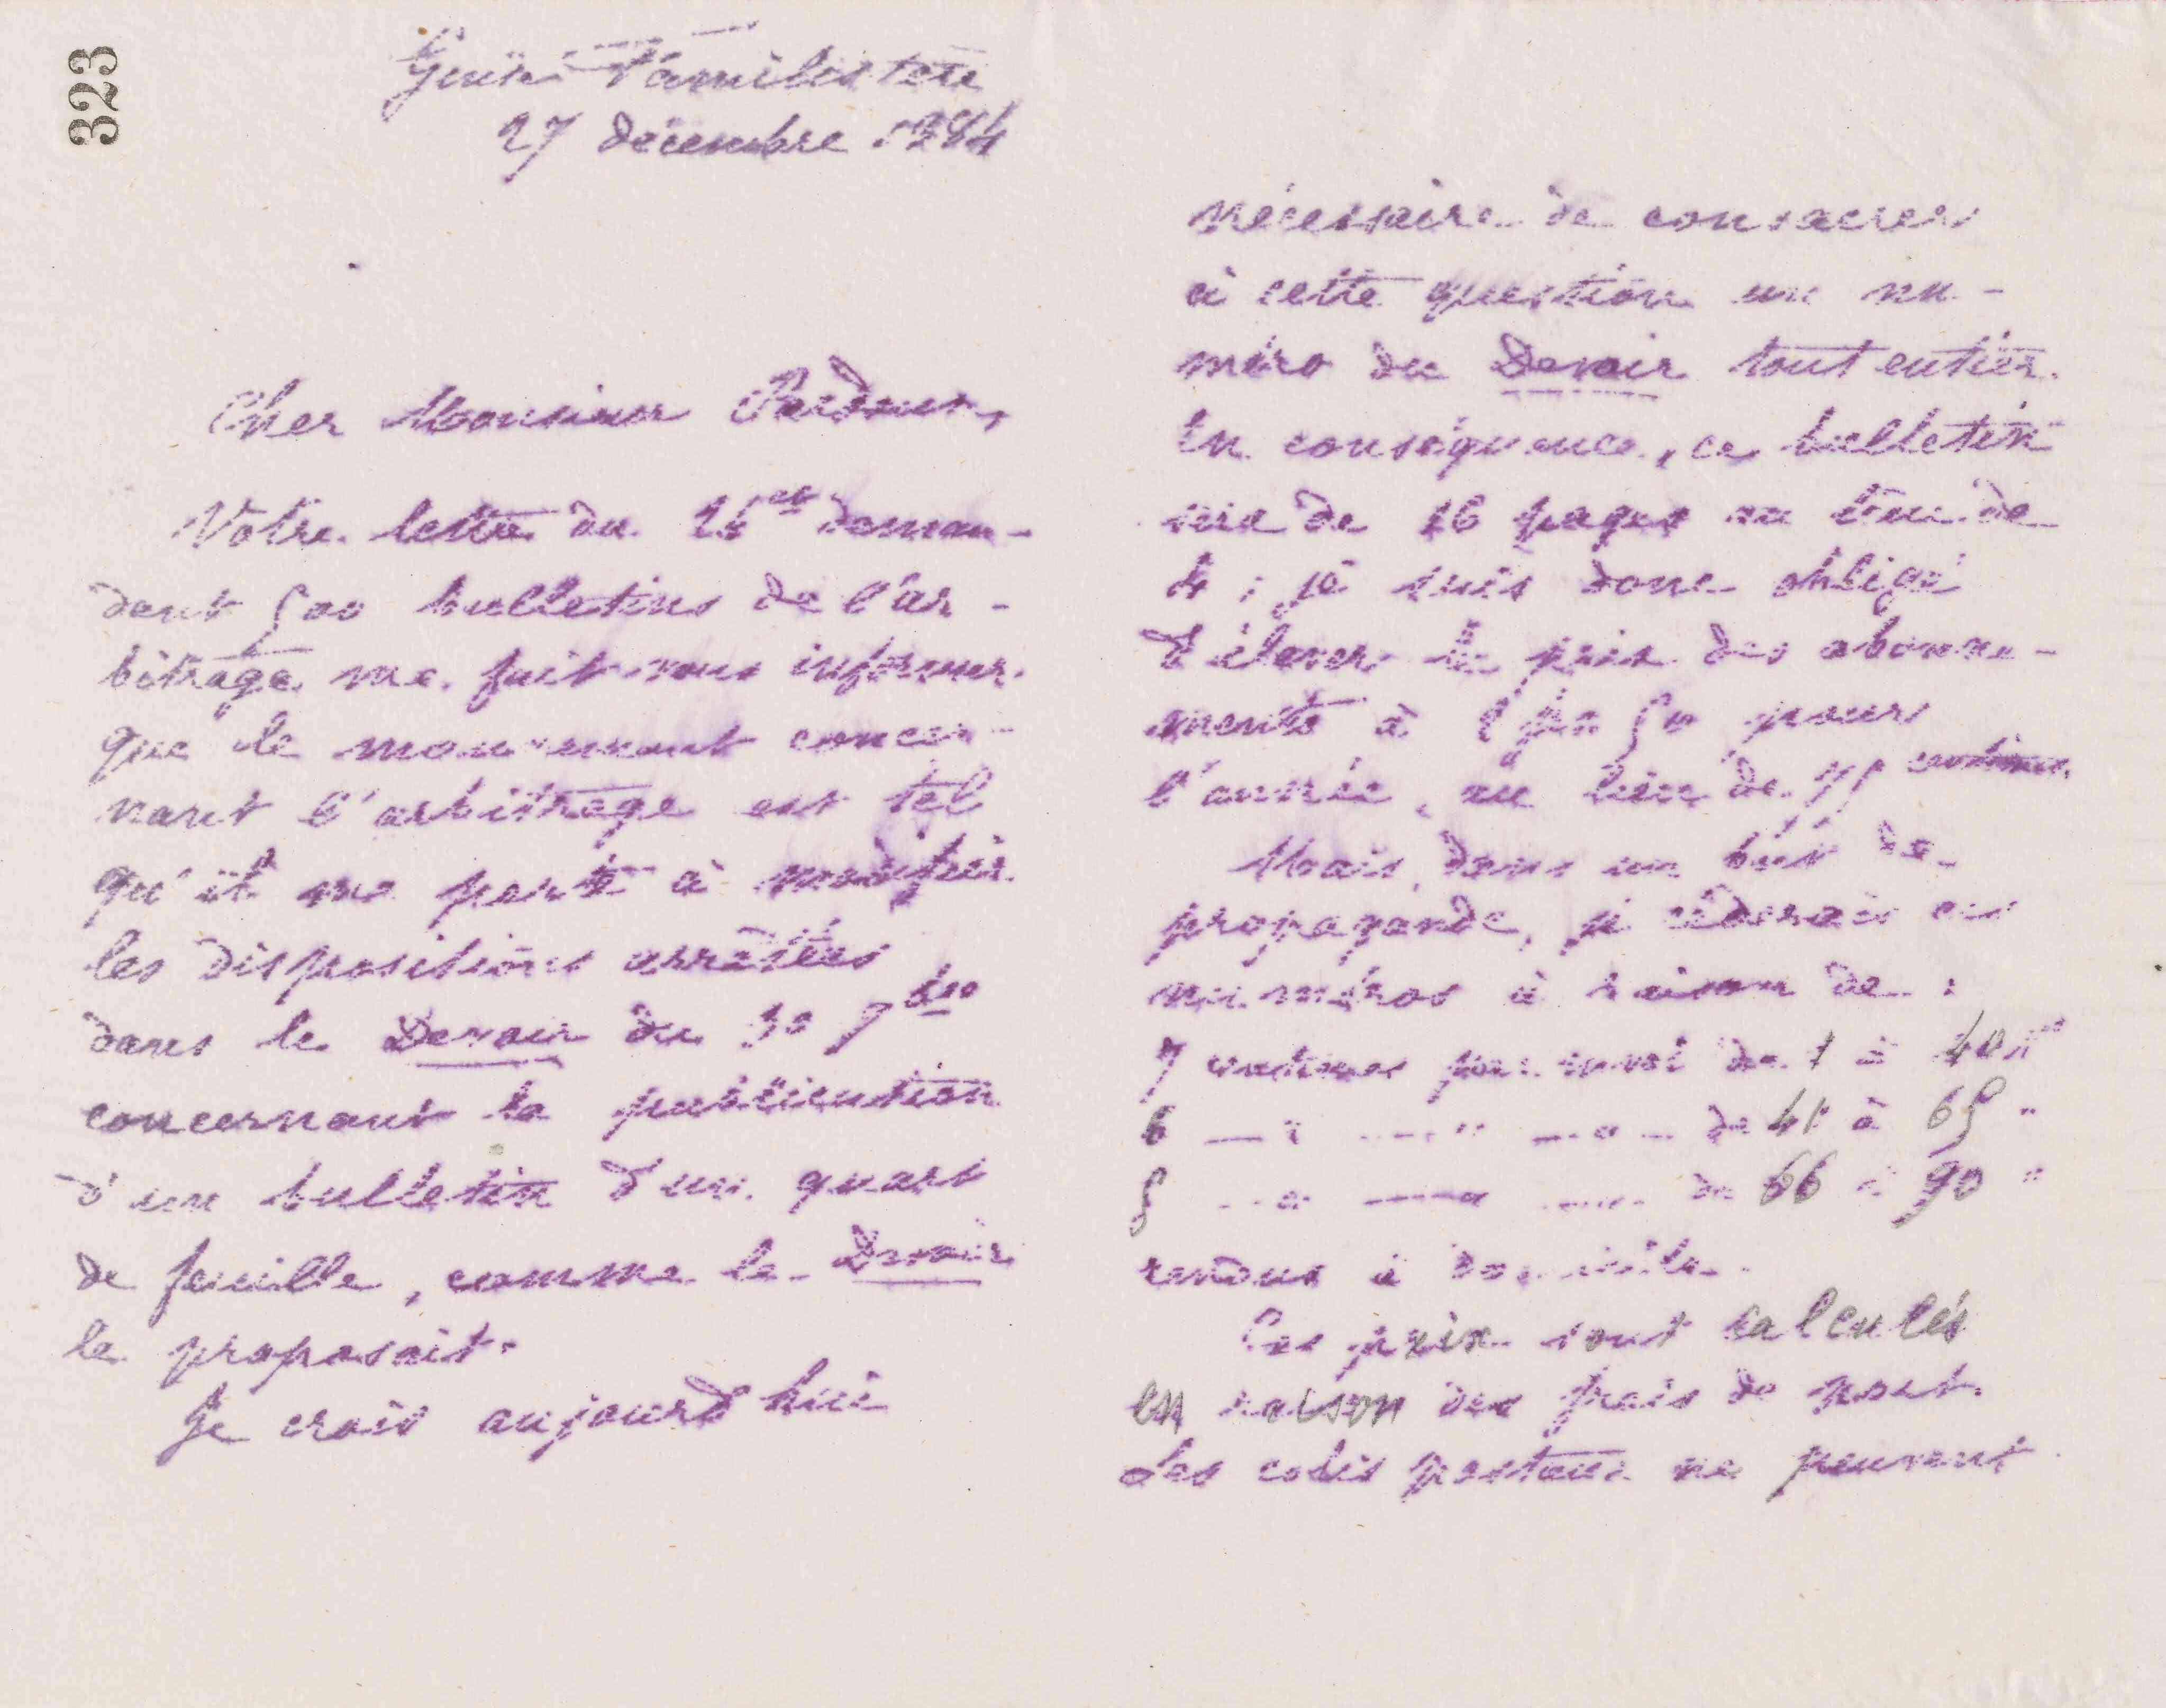 323
Guise Familistère
27 décembre 1884
Cher Monsieur
Votre lettre du deman-
dant 500 bulletins de l'ar-
bitrage me fait vous informer
que le mouvement concer-
nant l'arbitrage est tel
qu'il me porte à modifier
les dispositions arrêtées
dans le Devoir du 30 9bre
concernant la publication
d'un bulletin d'un quart
de feuille, comme le Devoir
le proposait.
Je crois aujourd'hui
nécessaire de consacrer
à cette question un nu-
méro du Devoir tout entier.
En conséquence, ce bulletin
sera de 16 pages au lieu de
4 ; je suis donc obligé
d'élever le prix des abonne-
ments à 50 pour
l'année, au lieu de 75 centimes.
Mais, dans un but de
propagande, je céderais ces
numéros à raison de :
7 centimes par envoi de 1 à 40
6 — " — " — de 41 à 65 "
5 — " — " — de 66 à 90 "
rendus à domicile.
Ces prix sont calculés
en raison des frais de port.
Les colis postaux ne peuvent